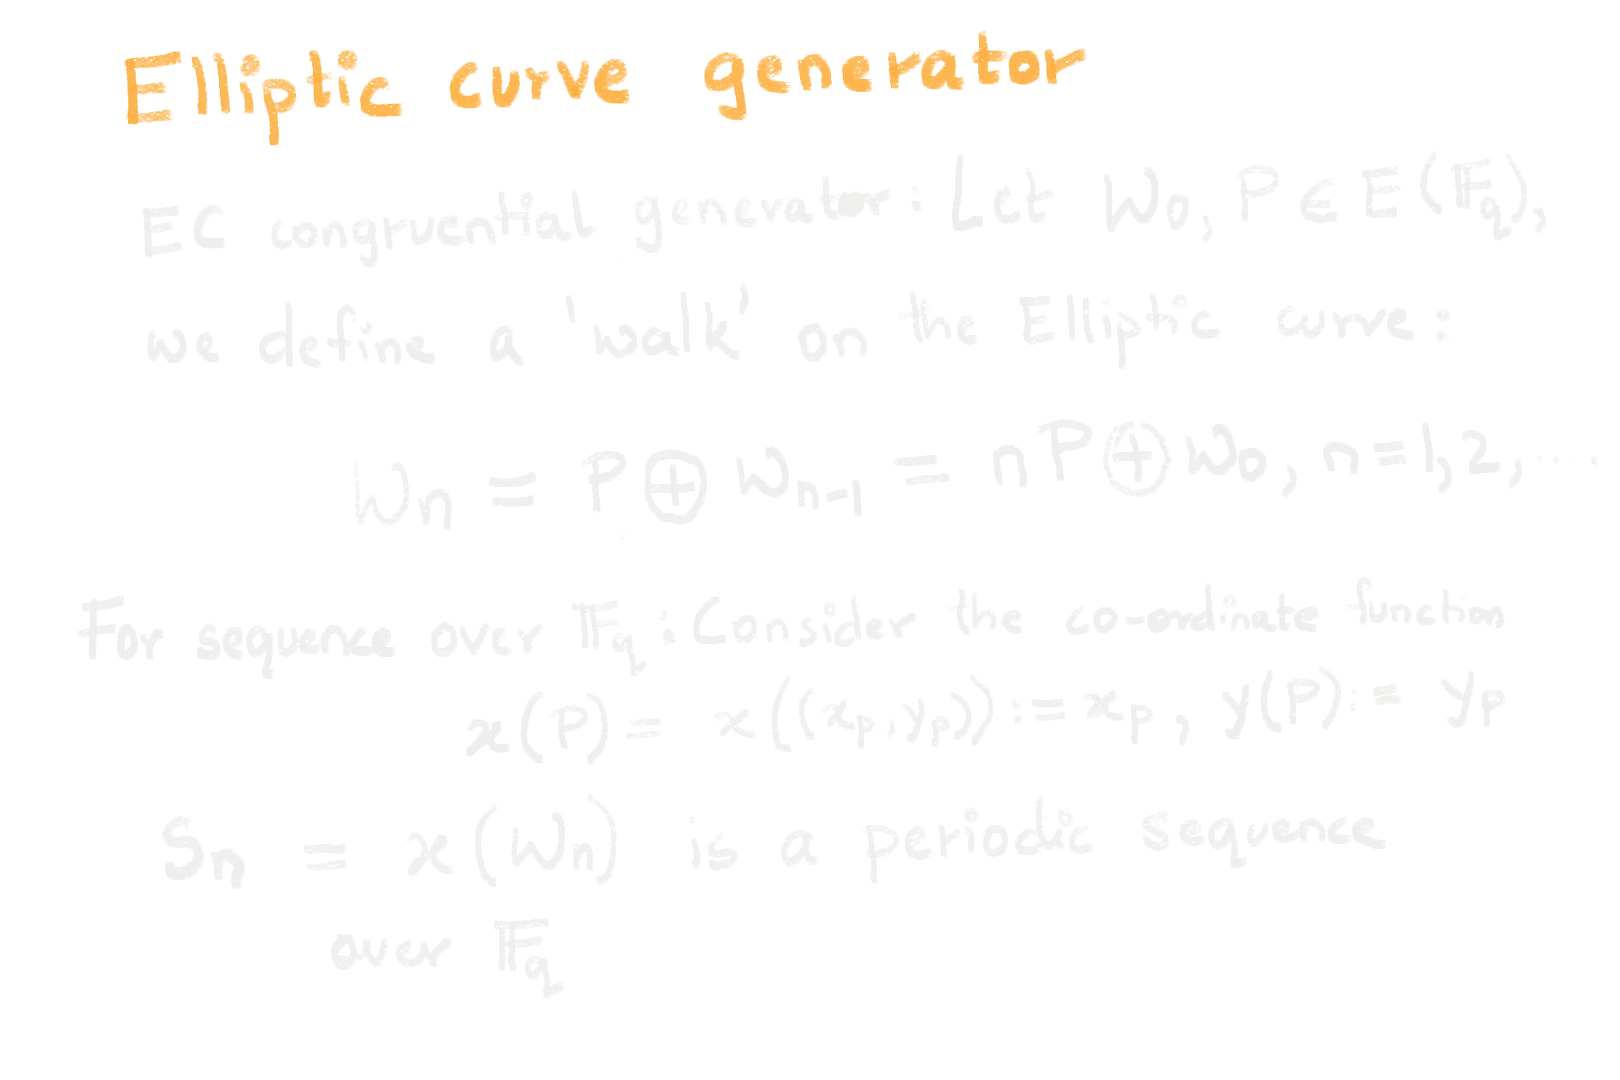 Elliptic curve generator
EC congruential generator: Let W₀, P ∈ E(𝔽q),
we define a 'walk' on the Elliptic curve:
Wₙ = P ⊕ Wₙ₋₁ = nP ⊕ W₀, n=1,2, ....
For sequence over 𝔽q: Consider the co-ordinate function
x(P) = x((xₚ, yₚ)) := xₚ, y(P) := yₚ
Sₙ = x(Wₙ) is a periodic sequence
over 𝔽q